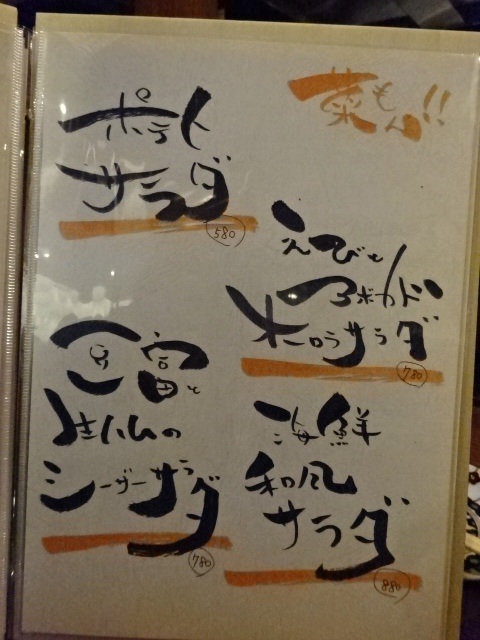 菜もん!!
えびと
アボカド
オーロラサラダ
780
海鮮
和風
サラダ
880
ポテト
サラダ
580
豆富と
生ハムの
シーザーサラダ
780